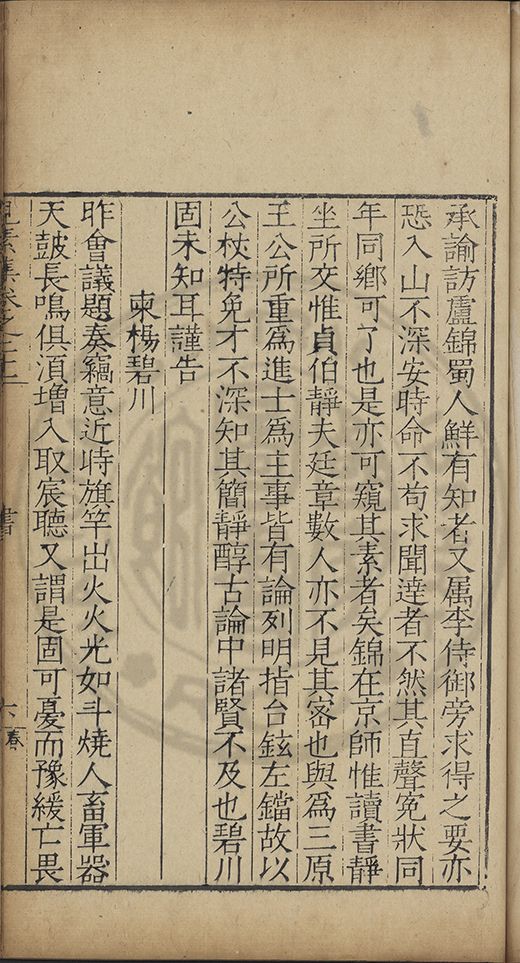 承諭訪盧錦蜀人鮮有知者又属李侍御旁求得之要亦
恐入山不深安時命不苟求聞達者不然其直聲寃狀同
年同鄉可了也是亦可窺其素者矣錦在京師惟讀書靜
坐所交惟貞伯靜夫廷章數人亦不見其宻也與為三原
王公所重為進士為主事皆有論列明指台鉉左鐺故以
公杖特免才不深知其簡靜醇古論中諸賢不及也碧川
固未知耳謹告
柬楊碧川
昨會議題奏竊意近時旗竿出火火光如斗燒人畜軍器
天皷長鳴俱湏增入取宸聽又謂是固可憂而豫緩亡畏
見素集卷之二十二
書
六
春